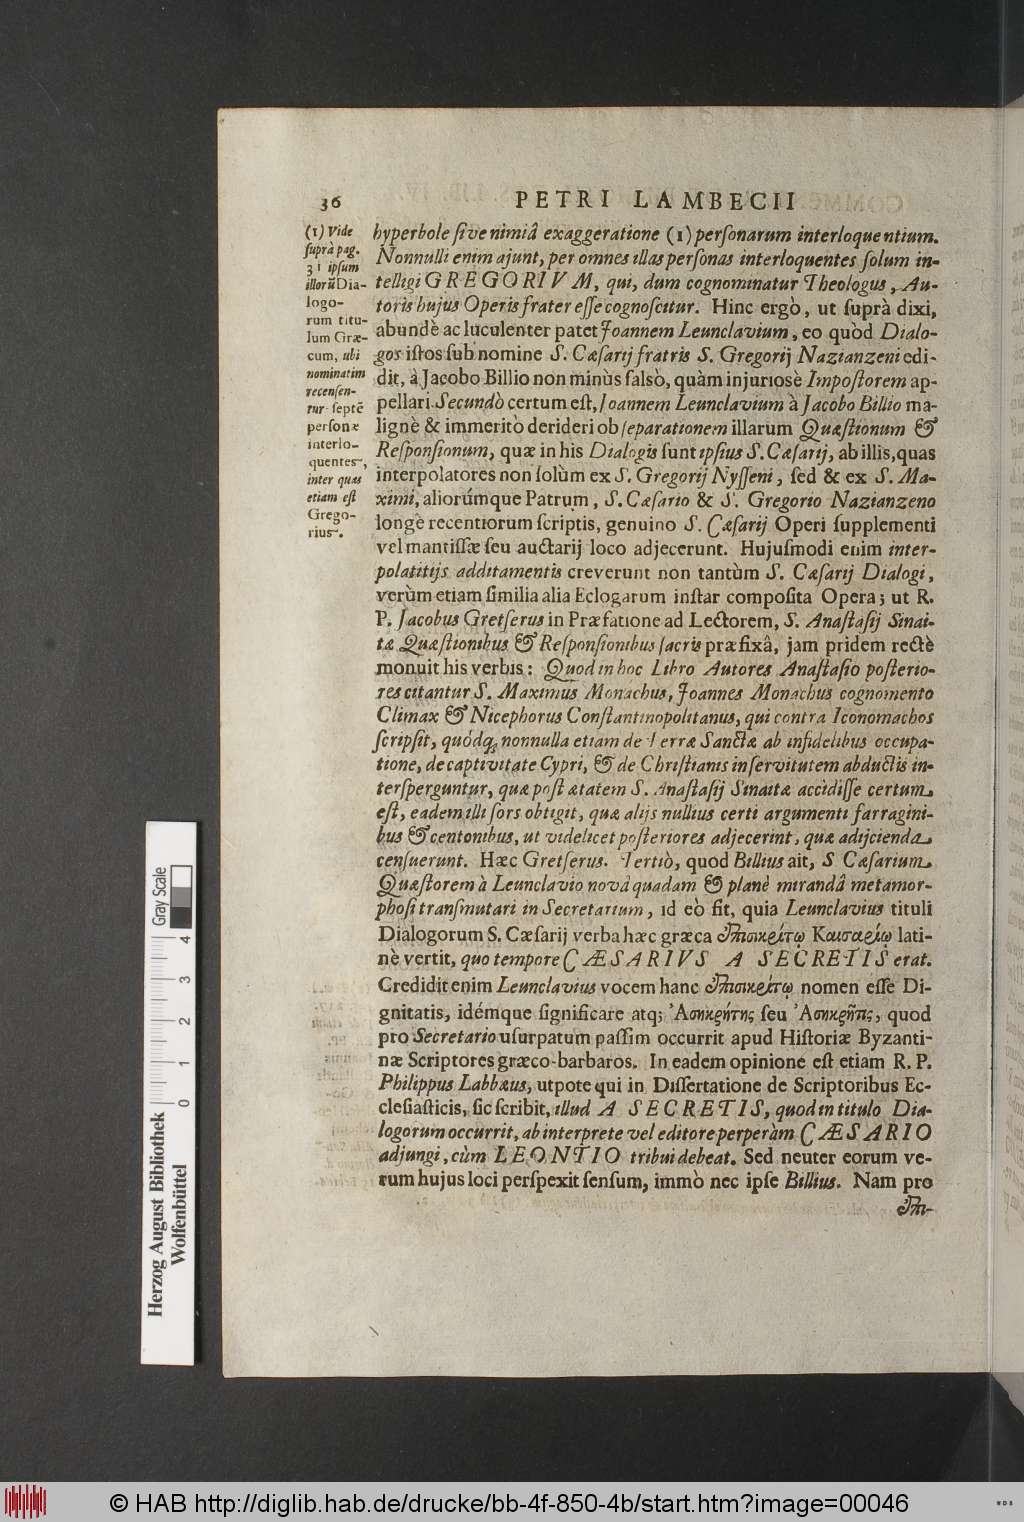 36 PETRI LAMBECII
(1) Vide
suprà pag.
31 ipsum
illorũ Dia-
logo-
rum titu-
lum Græ-
cum, ubi
nominatim
recensen-
tur septẽ
personæ
interlo-
quentes,
inter quas
etiam est
Grego-
rius.
hyperbole sive nimiâ exaggeratione (1) personarum interloquentium.
Nonnulli enim ajunt, per omnes illas personas interloquentes solum in-
telligi GREGORIVM, qui, dum cognominatur Theologus, Au-
toris hujus Operis frater esse cognoscitur. Hinc ergò, ut suprà dixi,
abundè ac luculenter patet Joannem Leunclavium, eo quòd Dialo-
gos istos sub nomine S. Cæsarij fratris S. Gregorij Nazianzeni edi-
dit, à Jacobo Billio non minùs falsò, quàm injuriosè Impostorem ap-
pellari. Secundò certum est, Joannem Leunclavium à Jacobo Billio ma-
lignè & immeritò derideri ob separationem illarum Quæstionum &
Responsionum, quæ in his Dialogis sunt ipsius S. Cæsarij, ab illis, quas
interpolatores non solùm ex S. Gregorij Nysseni, sed & ex S. Ma-
ximi, aliorúmque Patrum, S. Cæsario & S. Gregorio Nazianzeno
longè recentiorum scriptis, genuino S. Cæsarij Operi supplementi
vel mantissæ seu auctarij loco adjecerunt. Hujusmodi enim inter-
polatitijs additamentis creverunt non tantùm S. Cæsarij Dialogi,
verùm etiam similia alia Eclogarum instar composita Opera; ut R.
P. Jacobus Gretserus in Præfatione ad Lectorem, S. Anastasij Sinai-
tæ Quæstionibus & Responsionibus sacris præfixâ, jam pridem rectè
monuit his verbis: Quod in hoc Libro Autores Anastasio posterio-
res citantur S. Maximus Monachus, Joannes Monachus cognomento
Climax & Nicephorus Constantinopolitanus, qui contra Iconomachos
scripsit, quódq; nonnulla etiam de Terra Sancta ab infidelibus occupa-
tione, de captivitate Cypri, & de Christianis in servitutem abductis in-
tersperguntur, quæ post ætatem S. Anastasij Sinaitæ accidisse certum
est, eadem illi sors obtigit, quæ alijs nullius certi argumenti farragini-
bus & centonibus, ut videlicet posteriores adjecerint, quæ adijcienda
censuerunt. Hæc Gretserus. Tertiò, quod Billius ait, S. Cæsarium
Quæstorem à Leunclavio novâ quadam & planè mirandâ metamor-
phosi transmutari in Secretarium, id eò fit, quia Leunclavius tituli
Dialogorum S. Cæsarij verba hæc græca Ἐπισικρίτῳ Καισαρίῳ lati-
nè vertit, quo tempore CÆSARIVS A SECRETIS erat.
Credidit enim Leunclavius vocem hanc Ἐπισικρίτῳ nomen esse Di-
gnitatis, idémque significare atq; Ἀσηκρήτης seu Ἀσηκρῆτις, quod
pro Secretario usurpatum passim occurrit apud Historiæ Byzanti-
næ Scriptores græco-barbaros. In eadem opinione est etiam R. P.
Philippus Labbæus, utpote qui in Dissertatione de Scriptoribus Ec-
clesiasticis, sic scribit, illud A SECRETIS, quod in titulo Dia-
logorum occurrit, ab interprete vel editore perperàm CÆSARIO
adjungi, cùm LEONTIO tribui debeat. Sed neuter eorum ve-
rum hujus loci perspexit sensum, immò nec ipse Billius. Nam pro
Ἐπι-
Herzog August Bibliothek
Wolfenbüttel
0 1 2 3 4
Gray Scale
© HAB http://diglib.hab.de/drucke/bb-4f-850-4b/start.htm?image=00046